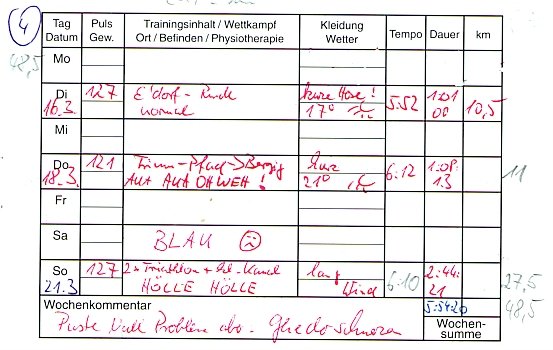 4
Tag Datum
Puls Gew.
Trainingsinhalt / Wettkampf
Ort / Befinden / Physiotherapie
Kleidung
Wetter
Tempo
Dauer
km
48,5
Mo
Di
16.3.
127
E'dorf - Runde
normal
kurze Hose!
17°
5:52
1:01
00
10,5
Mi
Do
18.3.
121
AUA AUA OH WEH !
kurz
21°
6:12
1:08:
13
11
Fr
Sa
BLAU
So
21.3
127
2x Triathlon +
HÖLLE HÖLLE
lang
Wind
6:10
2:44:
21
27,5
Wochenkommentar
5:54:20
48,5
Puste null Problem abo.
Wochen-
summe